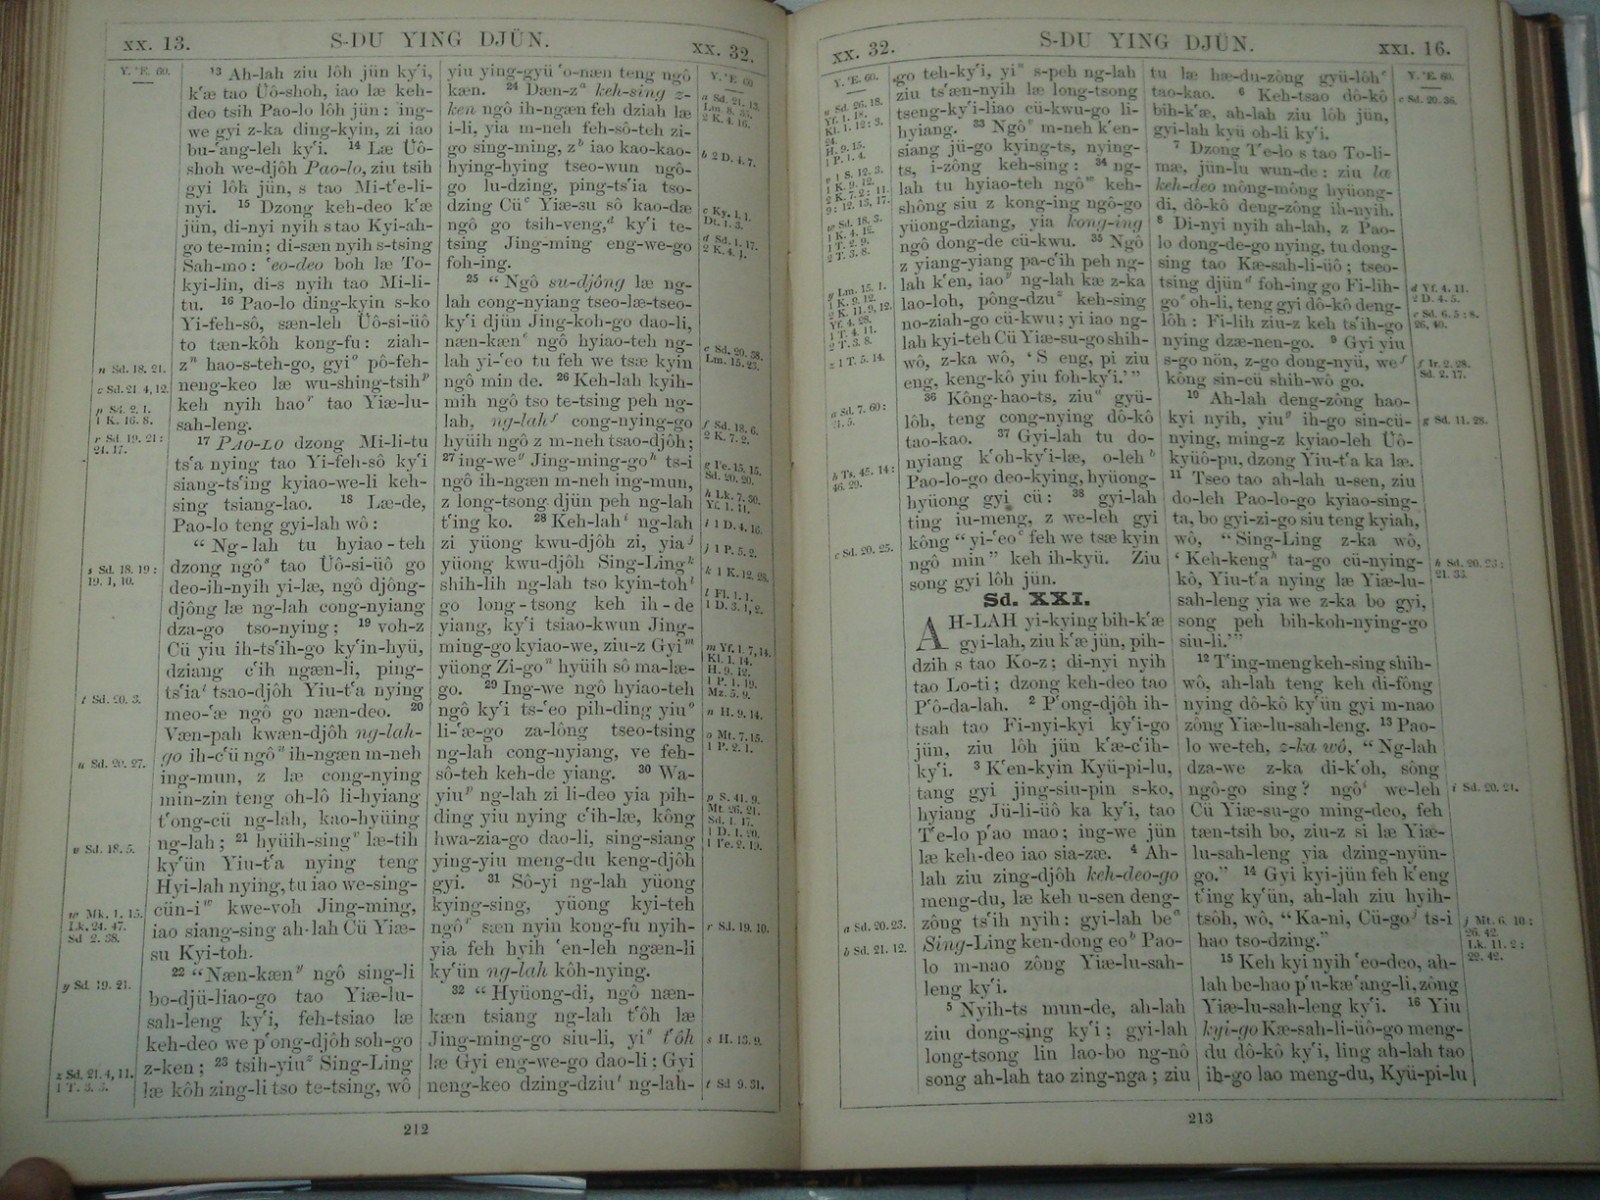 XX. 13.
S-DU YING DJÜN.
XX. 32.
Y. 'E. 60.
¹³ Ah-lah ziu lôh jün ky'i,
k'æ tao Üô-shoh, iao læ keh-
deo tsih Pao-lo lôh jün: ing-
we gyi z-ka ding-kyin, zi iao
bu-'ang-leh ky'i. ¹⁴ Læ Üô-
shoh we-djôh Pao-lo, ziu tsih
gyi lôh jün, s tao Mi-t'e-li-
nyi. ¹⁵ Dzong keh-deo k'æ
jün, di-nyi nyih s tao Kyi-ah-
go te-min; di-sæn nyih s-tsing
Sah-mo: 'eo-deo boh læ To-
kyi-lin, di-s nyih tao Mi-li-
tu. ¹⁶ Pao-lo ding-kyin s-ko
Yi-feh-sô, sæn-leh Üô-si-üô
to tæn-kôh kong-fu: ziah-
zⁿ hao-s-teh-go, gyiº pô-feh-
neng-keo læ wu-shing-tsihᵖ
keh nyih haoʳ tao Yiæ-lu-
sah-leng.
¹⁷ PAO-LO dzong Mi-li-tu
ts'a nying tao Yi-feh-sô ky'i
siang-ts'ing kyiao-we-li keh-
sing tsiang-lao. ¹⁸ Læ-de,
Pao-lo teng gyi-lah wô:
“ Ng-lah tu hyiao-teh
dzong ngôˢ tao Üô-si-üô go
deo-ih-nyih yi-læ, ngô djông-
djông læ ng-lah cong-nyiang
dza-go tso-nying; ¹⁹ voh-z
Cü yiu ih-ts'ih-go ky'in-hyü,
dziang c'ih ngæn-li, ping-
ts'iaᵗ tsao-djôh Yiu-t'a nying
meo-'æ ngô go næn-deo. ²⁰
Væn-pah kwæn-djôh ng-lah-
go ih-c'ü ngôᵘ ih-ngæn m-neh
ing-mun, z læ cong-nying
min-zin teng oh-lô li-hyiang
t'ong-cü ng-lah, kao-hyüing
ng-lah; ²¹ hyüih-singᵛ læ-tih
ky'ün Yiu-t'a nying teng
Hyi-lah nying, tu iao we-sing-
cün-iʷ kwe-voh Jing-ming,
iao siang-sing ah-lah Cü Yiæ-
su Kyi-toh.
²² “Næn-kænʸ ngô sing-li
bo-djü-liao-go tao Yiæ-lu-
sah-leng ky'i, feh-tsiao læ
keh-deo we p'ong-djôh soh-go
z-ken; ²³ tsih-yiuᶻ Sing-Ling
læ kôh zing-li tso te-tsing, wô
n Sd. 18. 21.
o Sd. 21 4, 12.
p Sd. 2. 1.
1 K. 16. 8.
r Sd. 19. 21:
24. 17.
s Sd. 18. 19:
19. 1, 10.
t Sd. 20. 3.
u Sd. 20. 27.
v Sd. 18. 5.
w Mk. 1. 15.
Lk. 24. 47.
Sd 2. 38.
y Sd. 19. 21.
z Sd. 21. 4, 11.
1 T. 3. 3.
yiu ying-gyü 'o-næn teng ngô
kæn. ²⁴ Dæn-zᵃ keh-sing z-
ken ngô ih-ngæn feh dziah læ
i-li, yia m-neh feh-sô-teh zi-
go sing-ming, zᵇ iao kao-kao-
hying-hying tseo-wun ngô-
go lu-dzing, ping-ts'ia tso-
dzing Cüᶜ Yiæ-su sô kao-dæ
ngô go tsih-veng,ᵈ ky'i te-
tsing Jing-ming eng-we-go
foh-ing.
²⁵ “ Ngô su-djông læ ng-
lah cong-nyiang tseo-læ-tseo-
ky'i djün Jing-koh-go dao-li,
næn-kænᵉ ngô hyiao-teh ng-
lah yi-'eo tu feh we tsæ kyin
ngô min de. ²⁶ Keh-lah kyih-
mih ngô tso te-tsing peh ng-
lah, ng-lahᶠ cong-nying-go
hyüih ngô z m-neh tsao-djôh;
²⁷ ing-weᵍ Jing-ming-goʰ ts-i
ngô ih-ngæn m-neh ing-mun,
z long-tsong djün peh ng-lah
t'ing ko. ²⁸ Keh-lahⁱ ng-lah
zi yüong kwu-djôh zi, yiaʲ
yüong kwu-djôh Sing-Lingᵏ
shih-lih ng-lah tso kyin-tohˡ
go long-tsong keh ih-de
yiang, ky'i tsiao-kwun Jing-
ming-go kyiao-we, ziu-z Gyiᵐ
yüong Zi-goⁿ hyüih sô ma-læ-
go. ²⁹ Ing-we ngô hyiao-teh
ngô ky'i ts-'eo pih-ding yiuº
li-'æ-go za-lông tseo-tsing
ng-lah cong-nyiang, ve feh-
sô-teh keh-de yiang. ³⁰ Wa-
yiuᵖ ng-lah zi li-deo yia pih-
ding yiu nying c'ih-læ, kông
hwa-zia-go dao-li, sing-siang
ying-yiu meng-du keng-djôh
gyi. ³¹ Sô-yi ng-lah yüong
kying-sing, yüong kyi-teh
ngôʳ sæn nyin kong-fu nyih-
yia feh hyih 'en-leh ngæn-li
ky'ün ng-lah kôh-nying.
³² “ Hyüong-di, ngô næn-
kæn tsiang ng-lah t'ôh læ
Jing-ming-go siu-li, yiˢ t'ôh
læ Gyi eng-we-go dao-li: Gyi
neng-keo dzing-dziuᵗ ng-lah-
Y. 'E. 60
a Sd. 21. 13.
2 K. 4. 16.
b 2 D. 4. 7.
c Ky. 1. 1.
Dt. 1. 3.
d Sd. 1. 17.
2 K. 4. 1.
e Sd. 20. 38.
Lm. 15. 23.
f Sd. 18. 6.
2 K. 7. 2.
g Ye. 15. 15.
Sd. 20. 20.
h Lk. 7. 30.
Yf. 1. 11.
i 1 D. 4. 16.
j 1 P. 5. 2.
k 1 K. 12. 28.
l Fl. 1. 1.
1 D. 3. 1, 2.
m Yf. 1. 7, 14.
Kl. 1. 14.
H. 9. 12.
1 P. 1. 19.
Mz. 5. 9.
n H. 9. 14.
o Mt. 7. 15.
1 P. 2. 1.
p S. 41. 9.
Mt. 26. 21.
Sd. 1. 17.
1 D. 1. 20.
1 Ye. 2. 19.
r Sd. 19. 10.
s H. 13. 9.
t Sd 9. 31.
212
XX. 32.
S-DU YING DJÜN.
XXI. 16.
Y. 'E. 60.
u Sd. 26. 18.
Yf. 1. 18.
Kl. 1. 12: 3.
24.
H. 9. 15.
1 P. 1. 4.
v 1 S. 12. 3.
1 K. 9. 12.
2 K. 7. 2: 11.
9: 12. 13, 17.
w Sd. 18. 3.
1 K. 4. 12.
1 T. 2. 9.
2 T. 3. 8.
y Lm. 15. 1.
1 K. 9. 12.
2 K. 11. 9, 12.
Yf. 4. 28.
1 T. 4. 11.
2 T. 3. 8.
z 1 T. 5. 14.
a Sd. 7. 60:
21. 5.
b Ts. 45. 14:
46. 29.
c Sd. 20. 25.
a Sd. 20. 23.
b Sd. 21. 12.
go teh-ky'i, yiᵘ s-peh ng-lah
ziu ts'æn-nyih læ long-tsong
tseng-ky'i-liao cü-kwu-go li-
hyiang. ³³ Ngôᵛ m-neh k'en-
siang jü-go kying-ts, nying-
ts, i-zông keh-sing: ³⁴ ng-
lah tu hyiao-teh ngôʷ keh-
shông siu z kong-ing ngô-go
yüong-dziang, yia kong-ing
ngô dong-de cü-kwu. ³⁵ Ngô
z yiang-yiang pa-c'ih peh ng-
lah k'en, iaoʸ ng-lah kæ z-ka
lao-loh, pông-dzuᶻ keh-sing
no-ziah-go cü-kwu; yi iao ng-
lah kyi-teh Cü Yiæ-su-go shih-
wô, z-ka wô, ‘ S eng, pi ziu
eng, keng-kô yiu foh-ky'i.’ ”
³⁶ Kông-hao-ts, ziuᵃ gyü-
lôh, teng cong-nying dô-kô
tao-kao. ³⁷ Gyi-lah tu do-
nyiang k'oh-ky'i-læ, o-lehᵇ
Pao-lo-go deo-kying, hyüong-
hyüong gyi cü: ³⁸ gyi-lah
ting iu-meng, z we-leh gyi
kông “ yi-'eoᶜ feh we tsæ kyin
ngô min ” keh ih-kyü. Ziu
song gyi lôh jün.
Sd. XXI.
AH-LAH yi-kying bih-k'æ
gyi-lah, ziu k'æ jün, pih-
dzih s tao Ko-z; di-nyi nyih
tao Lo-ti; dzong keh-deo tao
P'ô-da-lah. ² P'ong-djôh ih-
tsah tao Fi-nyi-kyi ky'i-go
jün, ziu lôh jün k'æ-c'ih-
ky'i. ³ K'en-kyin Kyü-pi-lu,
tang gyi jing-siu-pin s-ko,
hyiang Jü-li-üô ka ky'i, tao
T'e-lo p'ao mao; ing-we jün
læ keh-deo iao sia-zæ. ⁴ Ah-
lah ziu zing-djôh keh-deo-go
meng-du, læ keh u-sen deng-
zông ts'ih nyih: gyi-lah beᵃ
Sing-Ling ken-dong eoᵇ Pao-
lo m-nao zông Yiæ-lu-sah-
leng ky'i.
⁵ Nyih-ts mun-de, ah-lah
ziu dong-sing ky'i; gyi-lah
long-tsong lin lao-bo ng-nô
song ah-lah tao zing-nga; ziu
tu læ hæ-du-zông gyü-lôhᶜ
tao-kao. ⁶ Keh-tsao dô-kô
bih-k'æ, ah-lah ziu lôh jün,
gyi-lah kyü oh-li ky'i.
⁷ Dzong T'e-lo s tao To-li-
mæ, jün-lu wun-de: ziu læ
keh-deo mông-mông hyüong-
di, dô-kô deng-zông ih-nyih.
⁸ Di-nyi nyih ah-lah, z Pao-
lo dong-de-go nying, tu dong-
sing tao Kæ-sah-li-üô; tseo-
tsing djünᵈ foh-ing go Fi-lih-
goᵉ oh-li, teng gyi dô-kô deng-
lôh: Fi-lih ziu-z keh ts'ih-go
nying dzæ-nen-go. ⁹ Gyi yiu
s-go nön, z-go dong-nyü, weᶠ
kông sin-cü shih-wô go.
¹⁰ Ah-lah deng-zông hao-
kyi nyih, yiuᵍ ih-go sin-cü-
nying, ming-z kyiao-leh Üô-
kyüô-pu, dzong Yiu-t'a ka læ.
¹¹ Tseo tao ah-lah u-sen, ziu
do-leh Pao-lo-go kyiao-sing-
ta, bo gyi-zi-go siu teng kyiah,
wô, “ Sing-Ling z-ka wô,
‘ Keh-kengʰ ta-go cü-nying-
kô, Yiu-t'a nying læ Yiæ-lu-
sah-leng yia we z-ka bo gyi,
song peh bih-koh-nying-go
siu-li.’”
¹² T'ing-meng keh-sing shih-
wô, ah-lah teng keh di-fông
nying dô-kô ky'ün gyi m-nao
zông Yiæ-lu-sah-leng. ¹³ Pao-
lo we-teh, z-ka wô, “ Ng-lah
dza-we z-ka di-k'oh, sông
ngô-go sing? ngôⁱ we-leh
Cü Yiæ-su-go ming-deo, feh
tæn-tsih bo, ziu-z si læ Yiæ-
lu-sah-leng yia dzing-nyün-
go.” ¹⁴ Gyi kyi-jün feh k'eng
t'ing ky'ün, ah-lah ziu hyih-
tsôh, wô, “ Ka-ni, Cü-goʲ ts-i
hao tso-dzing.”
¹⁵ Keh kyi nyih 'eo-deo, ah-
lah be-hao p'u-kæ 'ang-li, zông
Yiæ-lu-sah-leng ky'i. ¹⁶ Yiu
kyi-go Kæ-sah-li-üô-go meng-
du dô-kô ky'i, ling ah-lah tao
ih-go lao meng-du, Kyü-pi-lu
Y. 'E. 60.
c Sd. 20. 36.
d Yf. 4. 11.
2 D. 4. 5.
e Sd. 6. 5: 8.
26, 40.
f Ir. 2. 28.
Sd. 2. 17.
g Sd. 11. 28.
h Sd. 20. 23:
21. 33.
i Sd. 20. 24.
j Mt. 6. 10:
26. 42.
Lk. 11. 2:
22. 42.
213